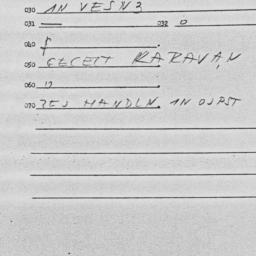 030 IN VESN3
031 — 032 0
040 f
050 GECETT KARAVAN
060 17
070 JES HANDLN IN OJPST